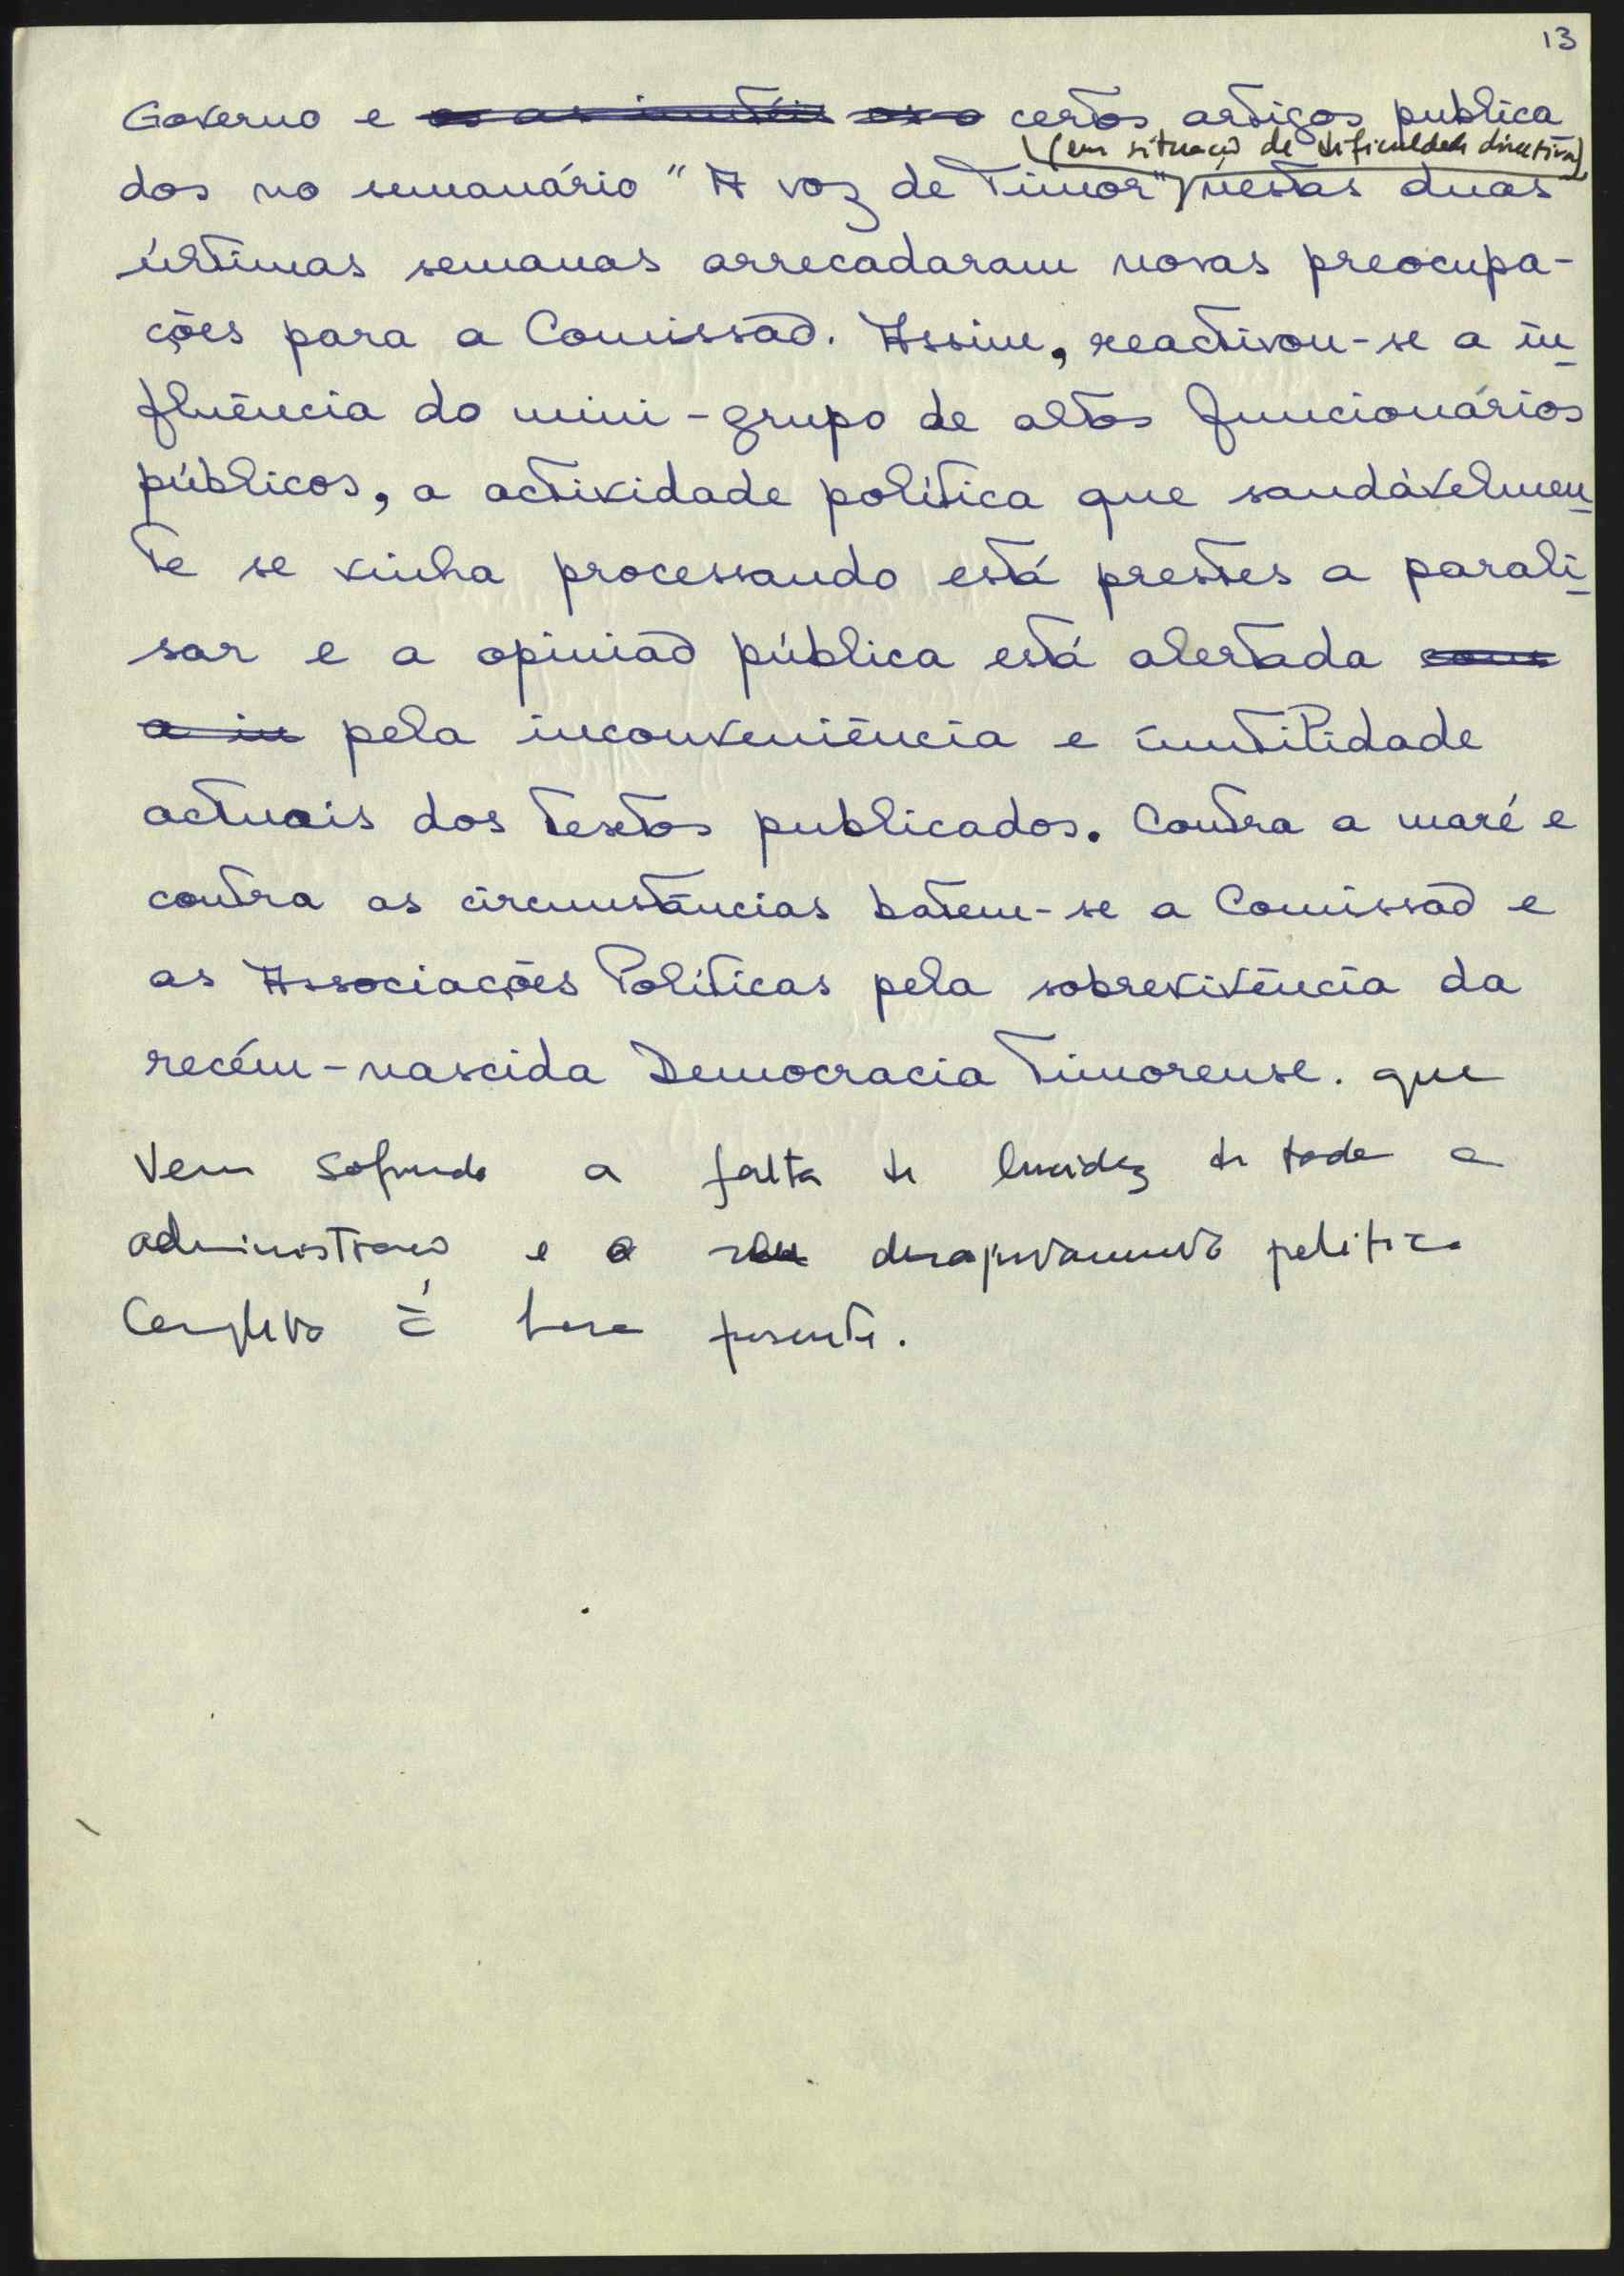 13
Governo e os as inutéis os o certos artigos publica
(em situação de dificuldade directiva)
dos no semanário "A voz de Timor" nestas duas
últimas semanas arrecadaram novas preocupa-
ções para a Comissão. Assim, reactivou-se a in
fluência do mini-grupo de altos funcionários
públicos, a actividade política que saudávelmen
te se vinha processando está prestes a parali
sar e a opinião pública está alertada
a in pela inconveniência e inutilidade
actuais dos textos publicados. Contra a maré e
contra as circunstâncias batem-se a Comissão e
as Associações Políticas pela sobrevivência da
recém-nascida Democracia Timorense. que
vem sofrendo a falta de lucidez de toda a
administração e o seu politico
Completo É hora presente.